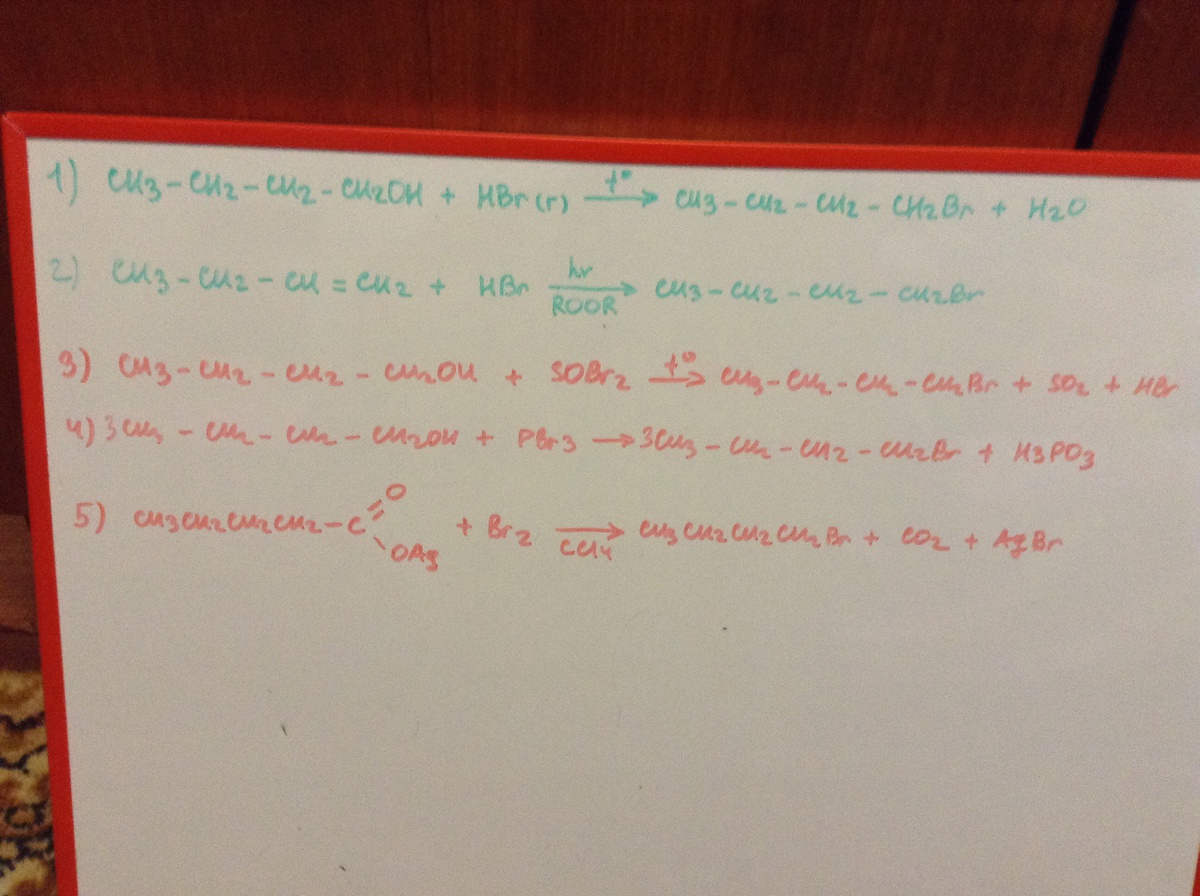 1) CH3-CH2-CH2-CH2OH + HBr(г) t° → CH3-CH2-CH2-CH2Br + H2O
2) CH3-CH2-CH=CH2 + HBr hν → ROOR CH3-CH2-CH2-CH2Br
3) CH3-CH2-CH2-CH2OH + SOBr2 t° → CH3-CH2-CH2-CH2Br + SO2 + HBr
4) 3CH3-CH2-CH2-CH2OH + PBr3 → 3CH3-CH2-CH2-CH2Br + H3PO3
5) CH3CH2CH2CH2-C =O \OAg + Br2 → CCl4 CH3CH2CH2CH2Br + CO2 + AgBr